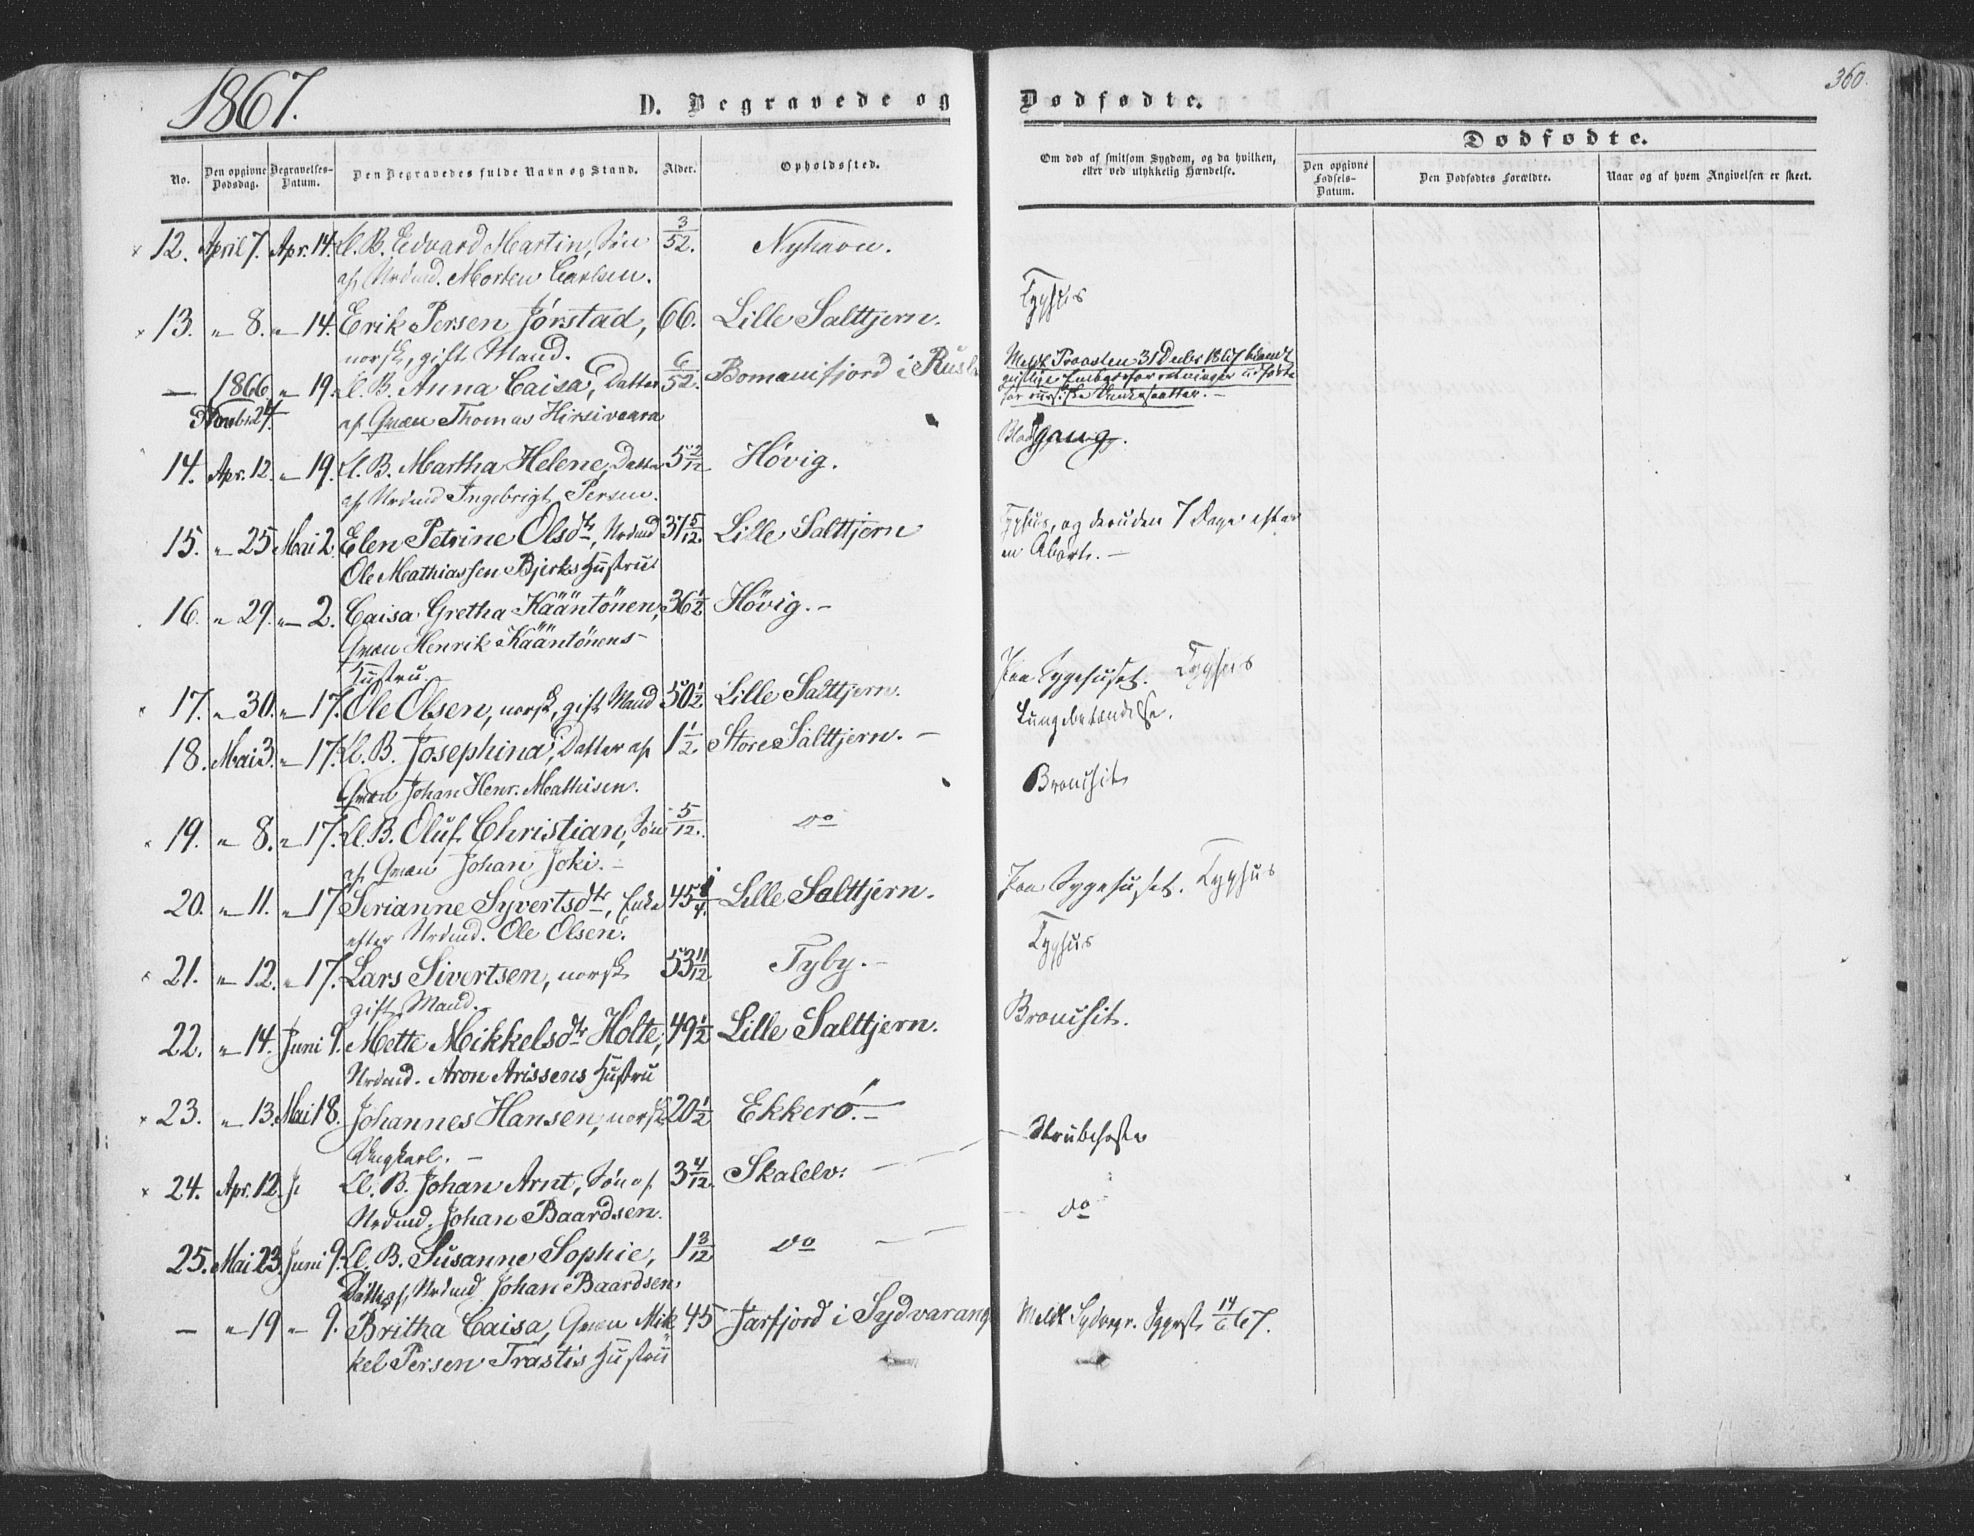 1867.
D. Begravede og
No.
Den opgivne Dødsdag.
Begravelses-Datum.
Den Begravedes fulde Navn og Stand.
Alder.
Opholdssted.
12. April 7. Apr. 14. Ll. B. Edvard Martin, Søn 3/52. Nyhavn.
af Nrdmd. Morten Carlsen.
13. " 8. " 14. Erik Persen Jørstad, 66. Lille Salttjern.
norsk, gift Mand.
— 1866 " 19. Ll. B. Anna Caisa, Datter 6/52. Bomanifjord i Rusl
24. af Qvæn Thomas Hirsivaara
14. Apr. 12. " 19. Ll. B. Martha Helene, Datter 5 2/12 Høvig.
af Nrdmd Ingebrigt Persen.
15. " 25 Mai 2. Elen Petrine Olsdtr, Nrdmd 37 5/12. Lille Salttjern
Ole Mathiassen Bjerks Hustru
16. " 29. " 2. Caisa Gretha Kääntönen, 36 1/2 Høvig. —
Qvæn Henrik Kääntönens
Hustru.
17. " 30. " 17. Ole Olsen, norsk, gift Mand 50 1/2 Lille Salttjern.
18. Mai 3. " 17. Ll. B. Josephina, Datter af 1 1/2. Store Salttjern. —
Qvæn Johan Henr. Mathisen.
19. " 8. " 17. Ll. B. Oluf Christian, Søn 5/12. do
af Qvæn Johan Joki. —
20. " 11. " 17 Serianne Syvertsdtr, Enke 45 1/4. Lille Salttjern.
efter Nrdmd. Ole Olsen.
21. " 12. " 17. Lars Sivertsen, norsk 53 11/12 Tyby. —
gift Mand.
22. " 14. Juni 9. Mette Mikkelsdtr Holte, 49 1/2 Lille Salttjern.
Nrdmd. Aron Arissens Hustru
23. " 13. Mai 18. Johannes Hansen, norsk 20 1/2 Ekkerö. —
Ungkarl. —
24. Apr. 12. J. Ll. B. Johan Arnt, Søn af 3 4/12. Skalelv.
Nrdmd. Johan Baardsen.
25. Mai 23. Juni 9. Ll. B. Susanne Sophie, 1 3/12 do
Datter af Nrdmd Johan Baardsen.
— " 19 " 9. Britha Caisa, Qvæn Mik 45 Jarfjord i Sydvarang
kel Persen Trastis Hustru
360.
Dødfødte.
Om død af smitsom Sygdom, og da hvilken, eller ved ulykkelig Hændelse.
Dødfødte.
Den opgivne Fødsels-Datum.
Den Dødfødtes Forældre.
Naar og af hvem Angivelsen er skeet.
Typhus
Meldt Provsten 31 Decbr 1867 blandt
geistlige Embedsforretninger udførte
for russiske Undersaatter. —
Blodgang.
Typhus, og desuden 7 Dage efter
en Abort. —
Paa Sygehuset. Typhus
Lungebetændelse.
Bronchit
Paa Sygehuset. Typhus
Typhus
Bronchit.
Strubehoste
do
Meldt Sydvgr. 14/6 67.